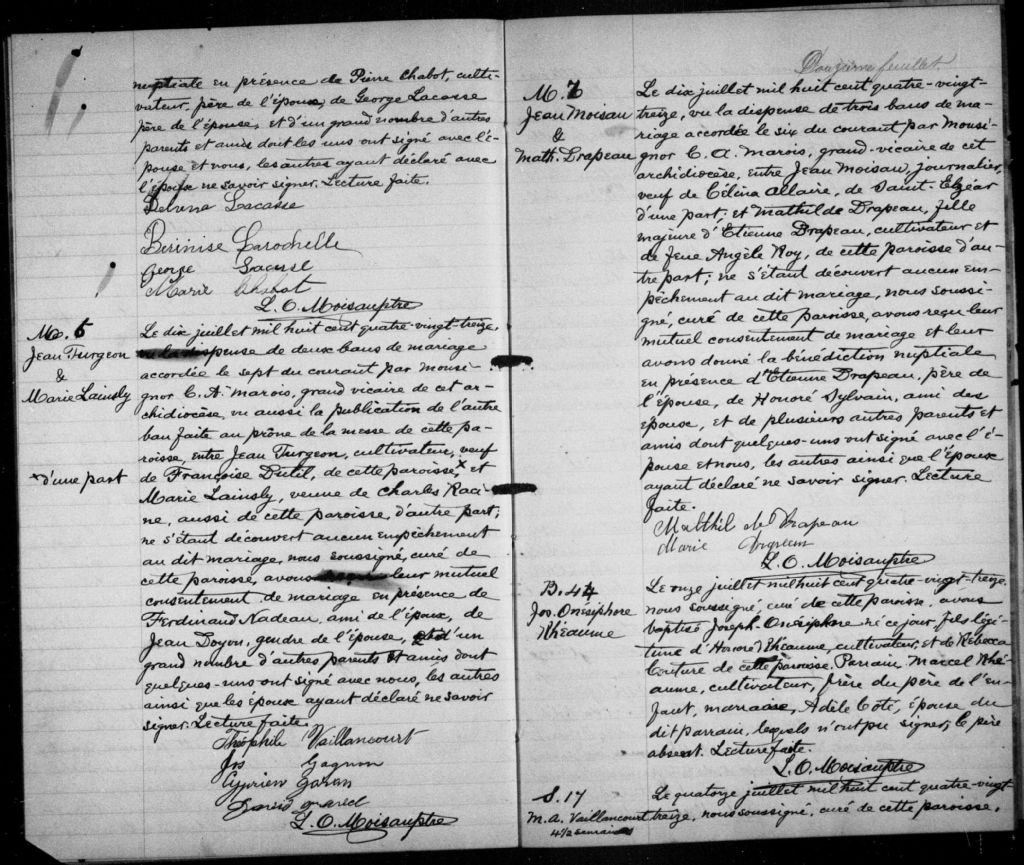 nuptiale en présence de Pierre Chabot, culti-
vateur, père de l'époux, de George Lacasse
père de l'épouse, et d'un grand nombre d'autres
parents et amis dont les uns ont signé avec l'é-
pouse et nous, les autres ayant déclaré avec
l'époux ne savoir signer. Lecture faite.
Delvena Lacasse
Berinise Larochelle
George Lacasse
Marie Chabot
L. O. Moisan ptre
M. 6
Jean Turgeon
&
Marie Lainsly
Le dix juillet mil huit cent quatre-vingt-treize,
vu la dispense de deux bans de mariage
accordée le sept du courant par monsi-
gnor C. A. Marois, grand vicaire de cet ar-
chidiocèse, vu aussi la publication de l'autre
ban faite au prône de la messe de cette pa-
roisse, entre Jean Turgeon, cultivateur, veuf
x d'une part
de Françoise Dutil, de cette paroisse x et
Marie Lainsly, veuve de Charles Raci-
ne, aussi de cette paroisse, d'autre part;
ne s'étant découvert aucun empêchement
au dit mariage, nous soussigné, curé de
cette paroisse, avons reçu leur mutuel
consentement de mariage en présence de
Ferdinand Nadeau, ami de l'époux, de
Jean Doyon, gendre de l'épouse, et d'un
grand nombre d'autres parents et amis dont
quelques-uns ont signé avec nous, les autres
ainsi que les époux ayant déclaré ne savoir
signer. Lecture faite.
Théophile Vaillancourt
Jos Gagnon
Cyprien
L. O. Moisan ptre
Douzième feuillet
M. 7
Jean Moisan
&
Math. Drapeau
Le dix juillet mil huit cent quatre-vingt-
treize, vu la dispense de trois bans de ma-
riage accordée le six du courant par Monsi-
gnor C. A. Marois, grand-vicaire de cet
archidiocèse, entre Jean Moisan, journalier,
veuf de Célina Allaire, de Saint-Elzéar
d'une part; et Mathilde Drapeau, fille
majeure d'Etienne Drapeau, cultivateur et
de feue Angèle Roy, de cette paroisse d'au-
tre part; ne s'étant découvert aucun em-
pêchement au dit mariage, nous soussi-
gné, curé de cette paroisse, avons reçu leur
mutuel consentement de mariage et leur
avons donné la bénédiction nuptiale
en présence d'Etienne Drapeau, père de
l'épouse, de Honoré Sylvain, ami des
époux, et de plusieurs autres parents et
amis dont quelques-uns ont signé avec l'é-
pouse et nous, les autres ainsi que l'époux
ayant déclaré ne savoir signer. Lecture
faite.
Mathilde Drapeau
Marie
L. O. Moisan ptre
B. 44
Jos. Onésiphore
Rhéaume
Le onze juillet mil huit cent quatre-vingt-treize,
nous soussigné, curé de cette paroisse, avons
baptisé Joseph-Onésiphore né ce jour, fils légi-
time d'Honoré Rhéaume, cultivateur, et de Rébecca
Couture de cette paroisse. Parrain, Marcel Rhé-
aume, cultivateur, frère du père de l'en-
fant, marraine, Adèle Côté, épouse du
dit parrain, lesquels n'ont pu signer, le père
absent. Lecture faite.
L. O. Moisan ptre
S. 17
M. A. Vaillancourt
4 1/2 semaines
Le quatorze juillet mil huit cent quatre-vingt
treize, nous soussigné, curé de cette paroisse,